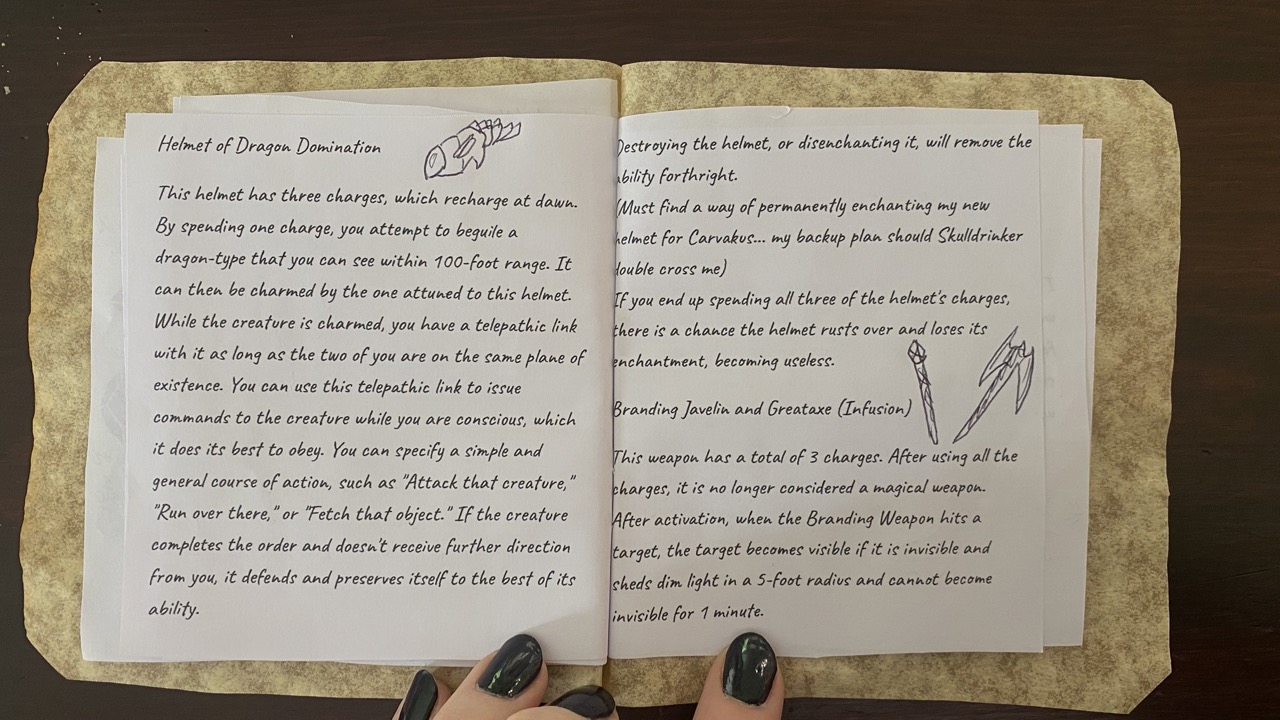 Helmet of Dragon Domination
This helmet has three charges, which recharge at dawn.
By spending one charge, you attempt to beguile a
dragon-type that you can see within 100-foot range. It
can then be charmed by the one attuned to this helmet.
While the creature is charmed, you have a telepathic link
with it as long as the two of you are on the same plane of
existence. You can use this telepathic link to issue
commands to the creature while you are conscious, which
it does its best to obey. You can specify a simple and
general course of action, such as "Attack that creature,"
"Run over there," or "Fetch that object." If the creature
completes the order and doesn't receive further direction
from you, it defends and preserves itself to the best of its
ability.
Destroying the helmet, or disenchanting it, will remove the
ability forthright.
(Must find a way of permanently enchanting my new
helmet for Carvakus... my backup plan should Skulldrinker
double cross me)
If you end up spending all three of the helmet's charges,
there is a chance the helmet rusts over and loses its
enchantment, becoming useless.
Branding Javelin and Greataxe (Infusion)
This weapon has a total of 3 charges. After using all the
charges, it is no longer considered a magical weapon.
After activation, when the Branding Weapon hits a
target, the target becomes visible if it is invisible and
sheds dim light in a 5-foot radius and cannot become
invisible for 1 minute.